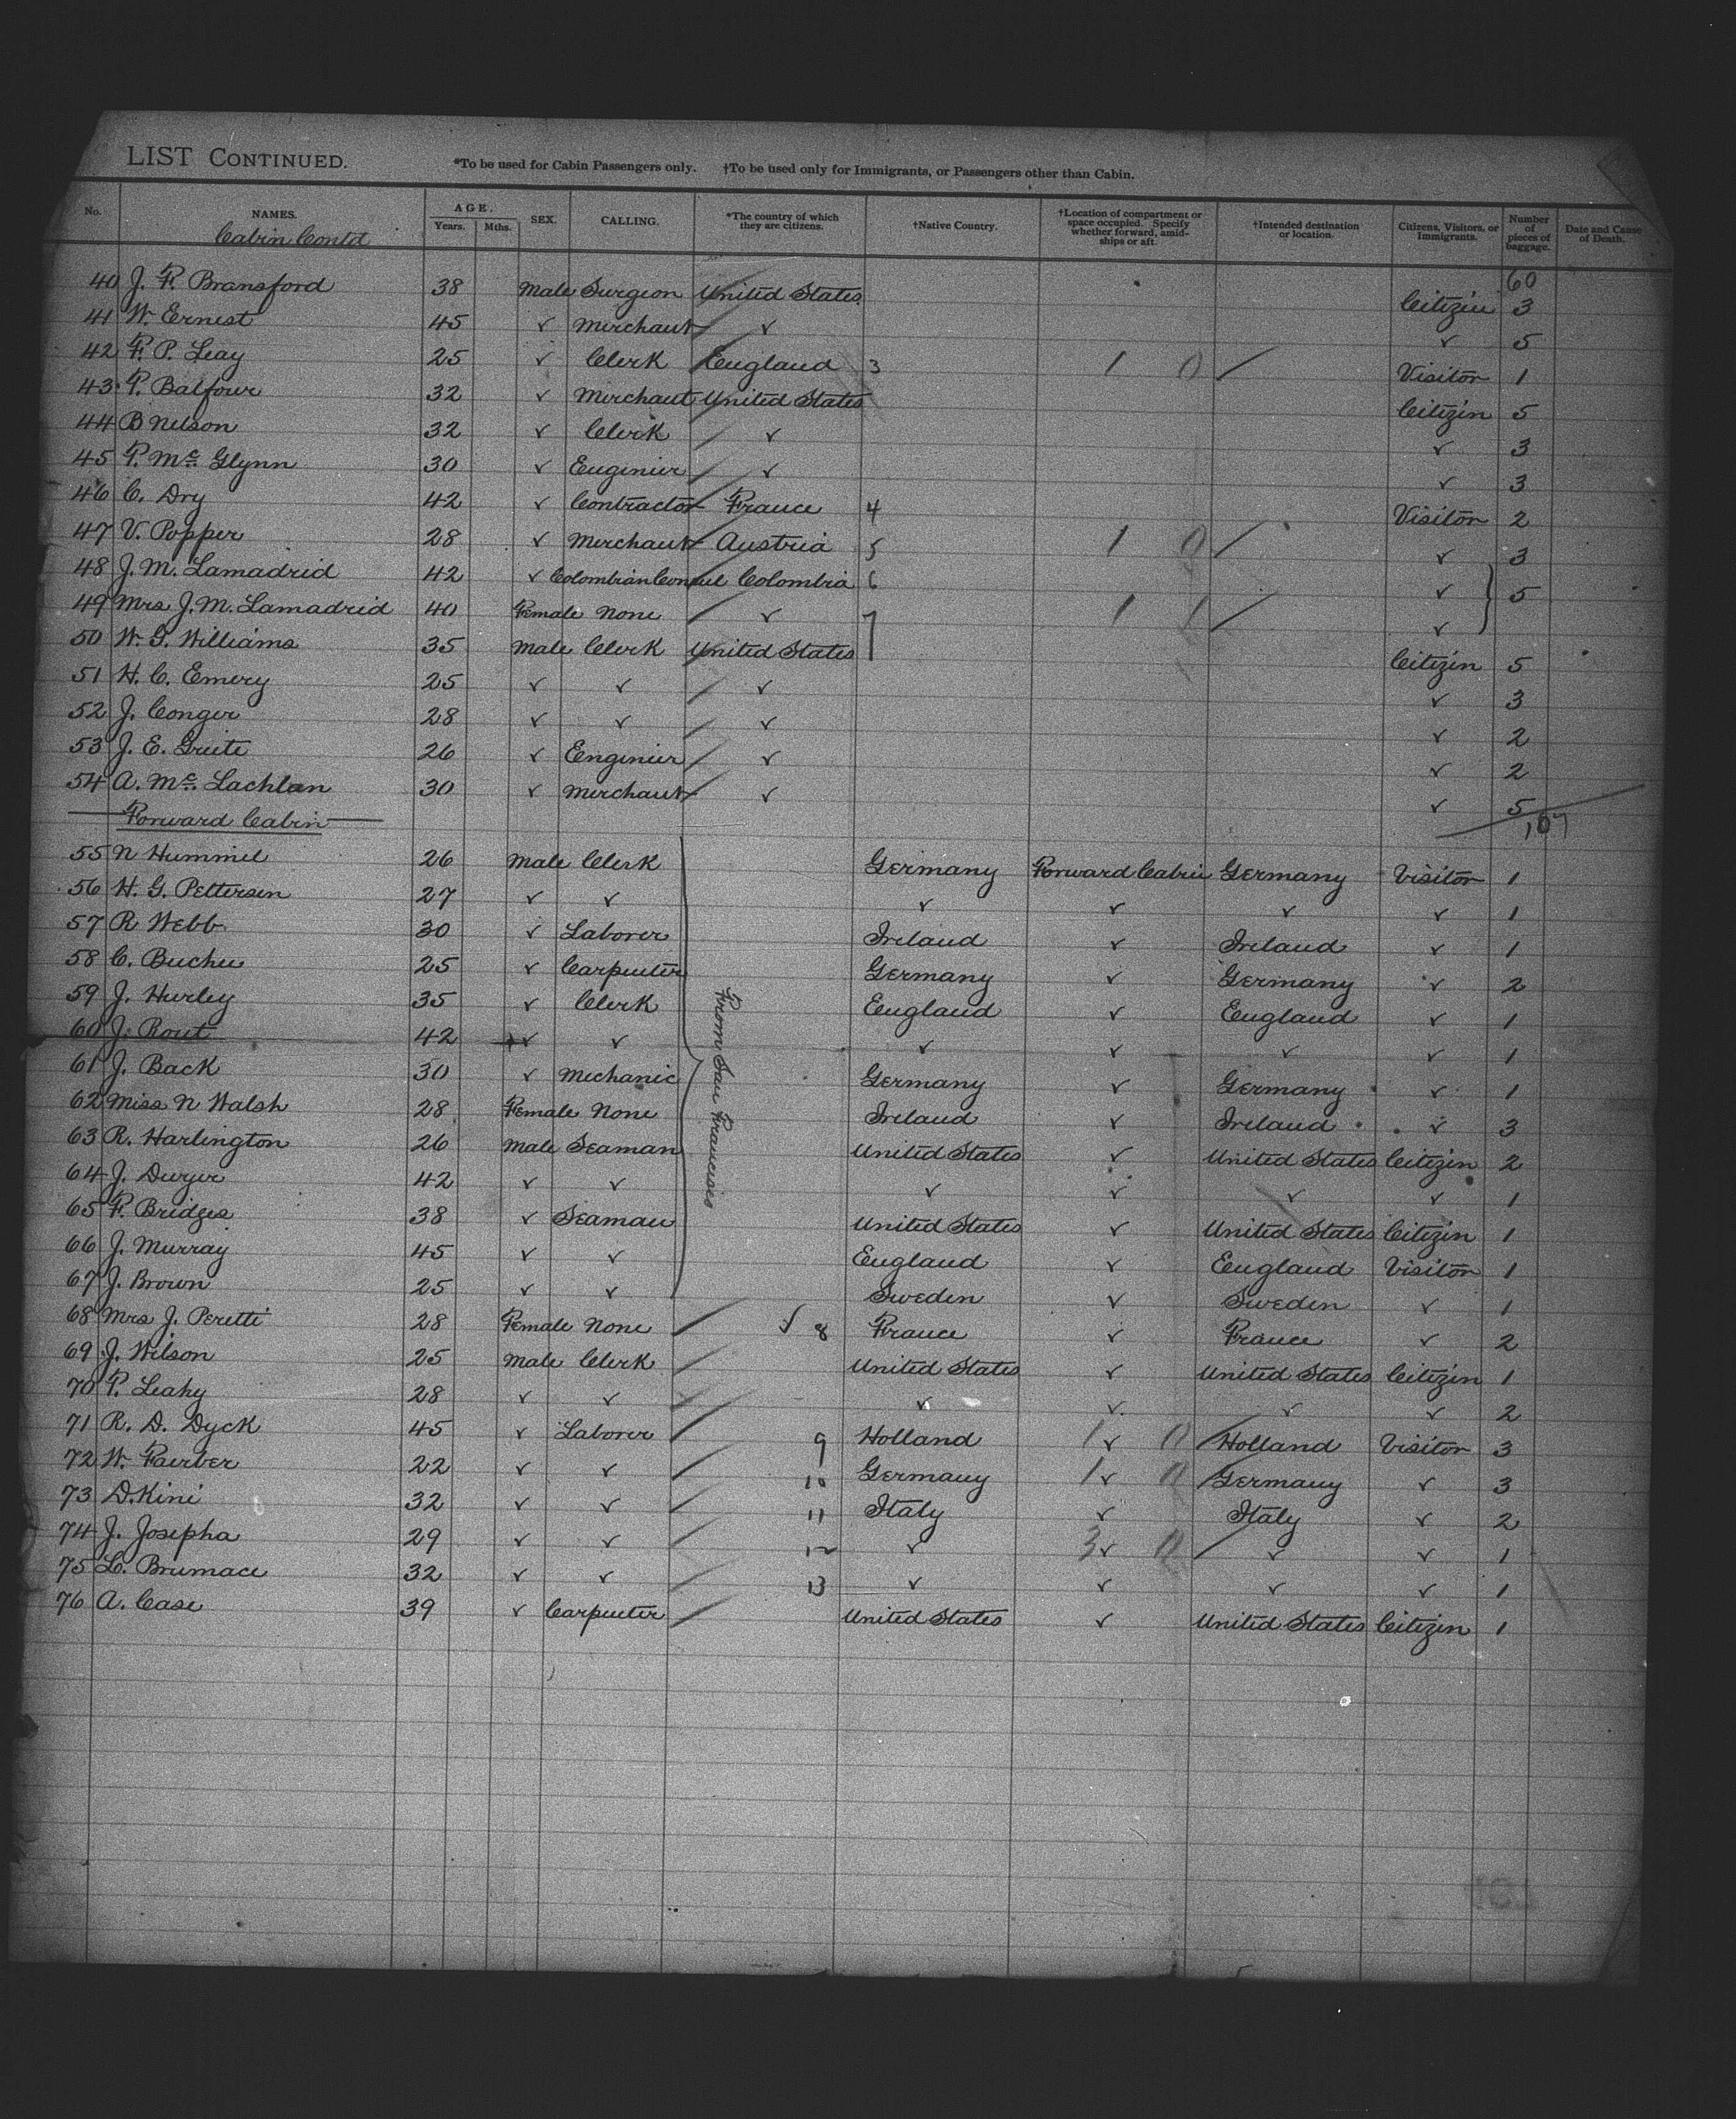 LIST CONTINUED. *To be used for Cabin Passengers only. †To be used only for Immigrants, or Passengers other than Cabin.
No. NAMES. AGE. Years. Mths. SEX. CALLING. *The country of which they are citizens. †Native Country. †Location of compartment or space occupied. Specify whether forward, amidships or aft. †Intended destination or location. Citizens, Visitors, or Immigrants. Number of pieces of baggage. Date and Cause of Death.
Cabin Contd
60
40 J. F. Bransford 38 Male Surgeon United States Citizen 3
41 W. Ernest 45 ✓ Merchant ✓ ✓ 5
42 F. P. Leay 25 ✓ Clerk England 3 1 0 / Visitor 1
43 P. Balfour 32 ✓ Merchant United States Citizen 5
44 B Nelson 32 ✓ Clerk ✓ ✓ 3
45 P. Mc Glynn 30 ✓ Enginier ✓ ✓ 3
46 C. Dry 42 ✓ Contractor France 4 Visitor 2
47 V. Popper 28 ✓ Merchant Austria 5 1 0 / ✓ 3
48 J. M. Lamadrid 42 ✓ Colombian Consul Colombia 6 ✓ 5
49 Mrs J. M. Lamadrid 40 Female None ✓ 7 1 1 / ✓
50 W. G. Williams 35 Male Clerk United States Citizen 5
51 H. C. Emery 25 ✓ ✓ ✓ ✓ 3
52 J. Conger 28 ✓ ✓ ✓ ✓ 2
53 J. E. Griete 26 ✓ Enginier ✓ ✓ 2
54 A. Mc Lachlan 30 ✓ Merchant ✓ ✓ 5
Forward Cabin 107
55 N Hummel 26 Male Clerk Germany Forward Cabin Germany Visitor 1
56 H. G. Pettersen 27 ✓ ✓ ✓ ✓ ✓ ✓ 1
57 R Webb 30 ✓ Laborer Ireland ✓ Ireland ✓ 1
58 C. Buchee 25 ✓ Carpenter Germany ✓ Germany ✓ 2
59 J. Hurley 35 ✓ Clerk England ✓ England ✓ 1
60 J. Rout 42 ✓ ✓ ✓ ✓ ✓ ✓ 1
From San Francisco
61 J. Back 30 ✓ Mechanic Germany ✓ Germany ✓ 1
62 Miss N Walsh 28 Female None Ireland ✓ Ireland ✓ 3
63 R. Harlington 26 Male Seaman United States ✓ United States Citizen 2
64 J. Dwyer 42 ✓ ✓ ✓ ✓ ✓ ✓ 1
65 F. Bridges 38 ✓ Seaman United States ✓ United States Citizen 1
66 J. Murray 45 ✓ ✓ England ✓ England Visitor 1
67 J. Brown 25 ✓ ✓ Sweden ✓ Sweden ✓ 1
68 Mrs J. Peretti 28 Female None ✓ 8 France ✓ France ✓ 2
69 J. Wilson 25 Male Clerk United States ✓ United States Citizen 1
70 P. Leahy 28 ✓ ✓ ✓ ✓ ✓ ✓ 2
71 R. D. Dyck 45 ✓ Laborer 9 Holland 1 ✓ 0 Holland Visitor 3
72 W. Fairber 22 ✓ ✓ 10 Germany 1 ✓ 0 Germany ✓ 3
73 D. Kini 32 ✓ ✓ 11 Italy ✓ Italy ✓ 2
74 J. Josepha 29 ✓ ✓ 12 ✓ 3 ✓ 0 ✓ ✓ 1
75 L. Brumace 32 ✓ ✓ 13 ✓ ✓ ✓ ✓ 1
76 A. Case 39 ✓ Carpenter United States ✓ United States Citizen 1